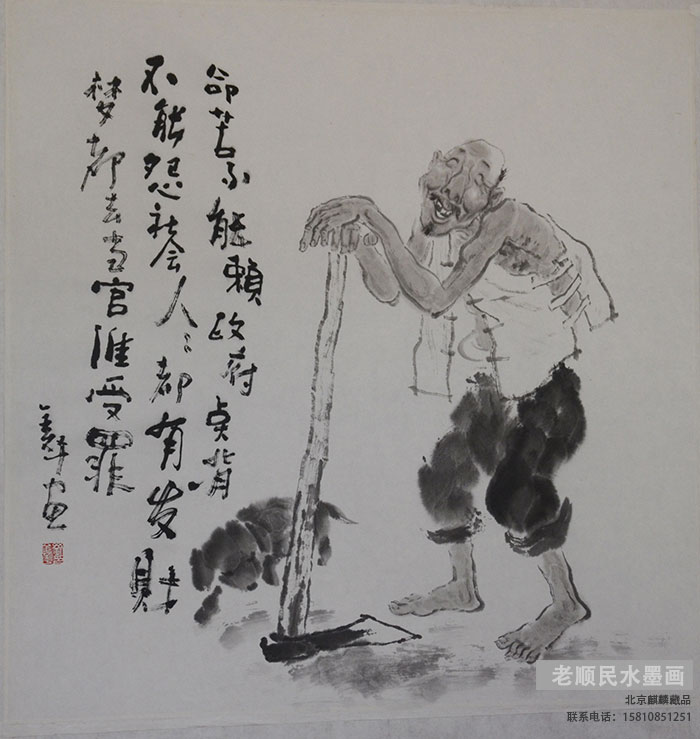 命苦不能赖政府点背
不能怨社会人々都有发财
梦都去当官谁受罪
画
老顺民水墨画
北京麒麟藏品
联系电话：15810851251